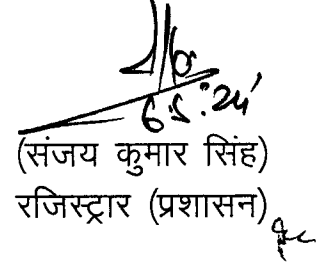 6.5.'24
(संजय कुमार सिंह)
रजिस्ट्रार (प्रशासन)